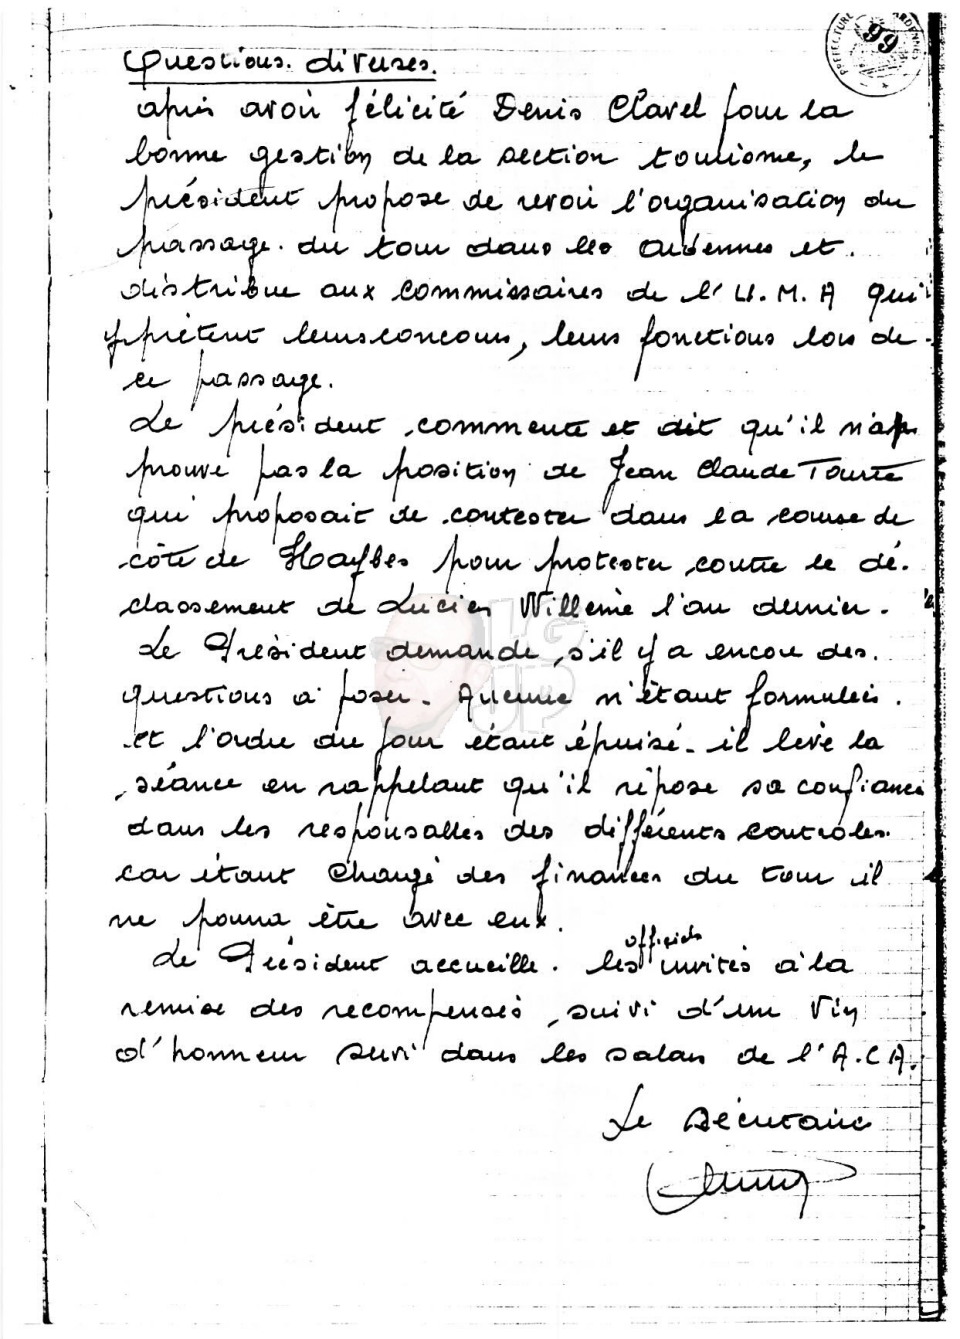 PREFECTURE ARDENNES
99
Questions diverses.
après avoir félicité Denis Clavel pour la
bonne gestion de la section tourisme, le
président propose de revoir l'organisation du
passage du tour dans les ardennes et
distribue aux commissaires de l'U.M.A qui
y prêtent leurs concours, leurs fonctions lors de
ce passage.
Le président commente et dit qu'il n'ap
prouve pas la position de Jean Claude Tourte
qui proposait de contester dans la course de
côte de Haybes pour protester contre le dé-
classement de Lucien Willeme l'an dernier.
Le Président demande s'il y a encore des
questions à poser. Aucune n'étant formulées.
et l'ordre du jour étant épuisé - il lève la
séance en rappelant qu'il repose sa confiance
dans les responsables des différents contrôles
car étant chargé des finances du tour il
ne pourra être avec eux.
officiels
Le Président accueille les invités à la
remise des recompenses, suivi d'un Vin
d'honneur servi dans les salons de l'A.C.A.
Le secrétaire